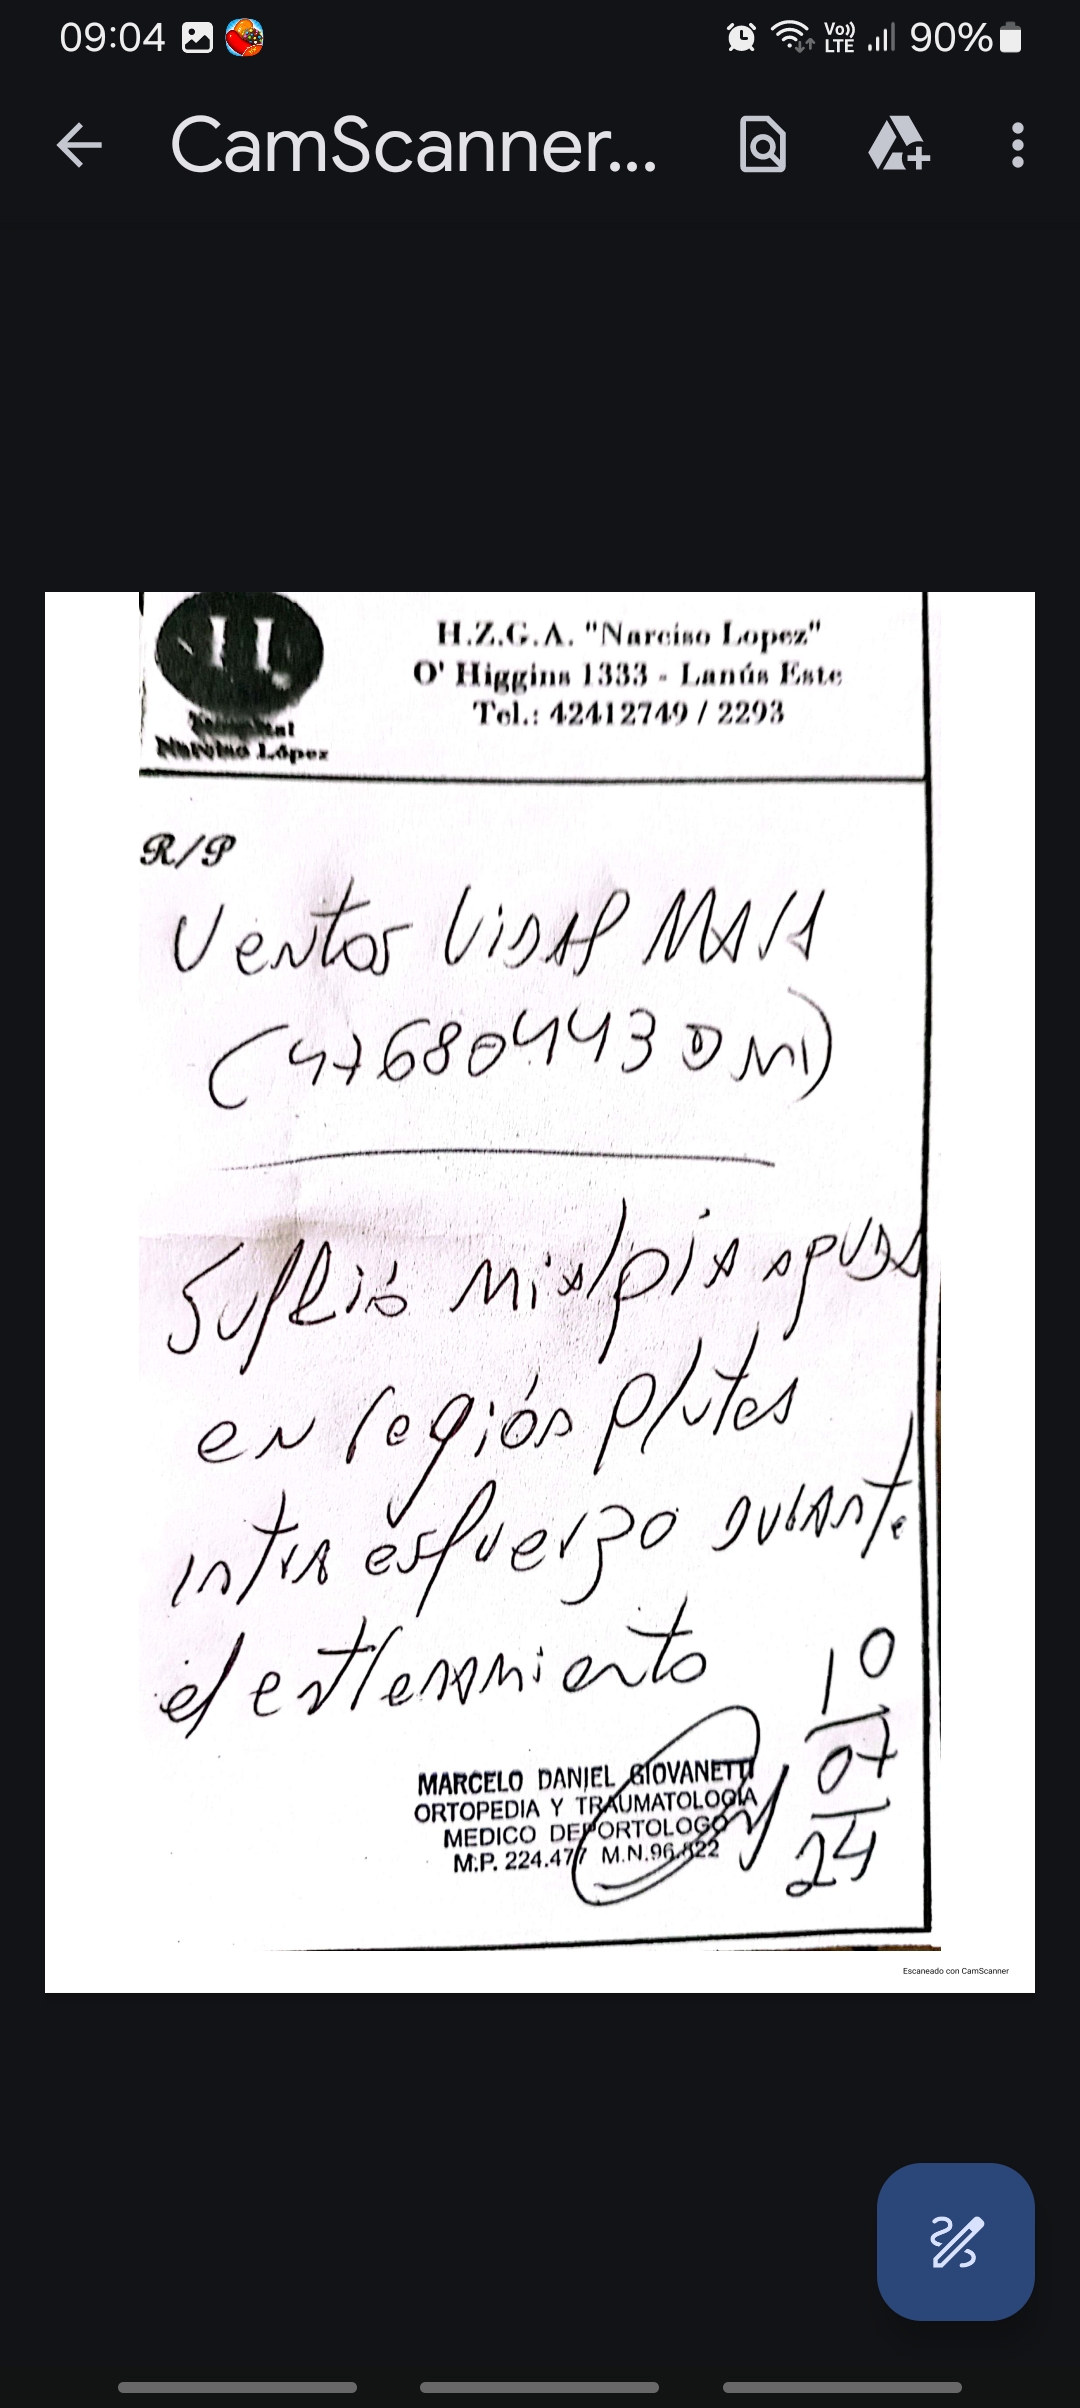 09:04 Vo)) LTE 90%
CamScanner...
H.Z.G.A. "Narciso Lopez"
O' Higgins 1333 - Lanús Este
Tel.: 42412749 / 2293
Hospital
Narciso López
R/P
Ventos Vidal
(47680443 DNI)
Sufrió mialgia aguda
en región glútea
intra esfuerzo durante
el entrenamiento
10
07
24
MARCELO DANIEL GIOVANETTI
ORTOPEDIA Y TRAUMATOLOGIA
MEDICO DEPORTOLOGO
M.P. 224.477 M.N.96.822
Escaneado con CamScanner